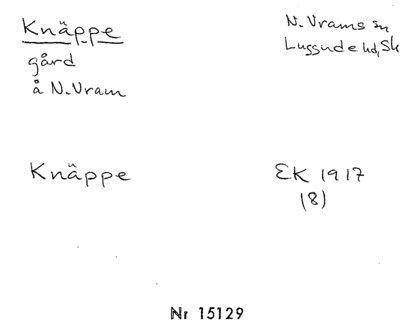 Knäppe
gård
å N. Vram
N. Vrams sn
Luggude hd, Sk
Knäppe
EK 1917
(8)
Nr 15129